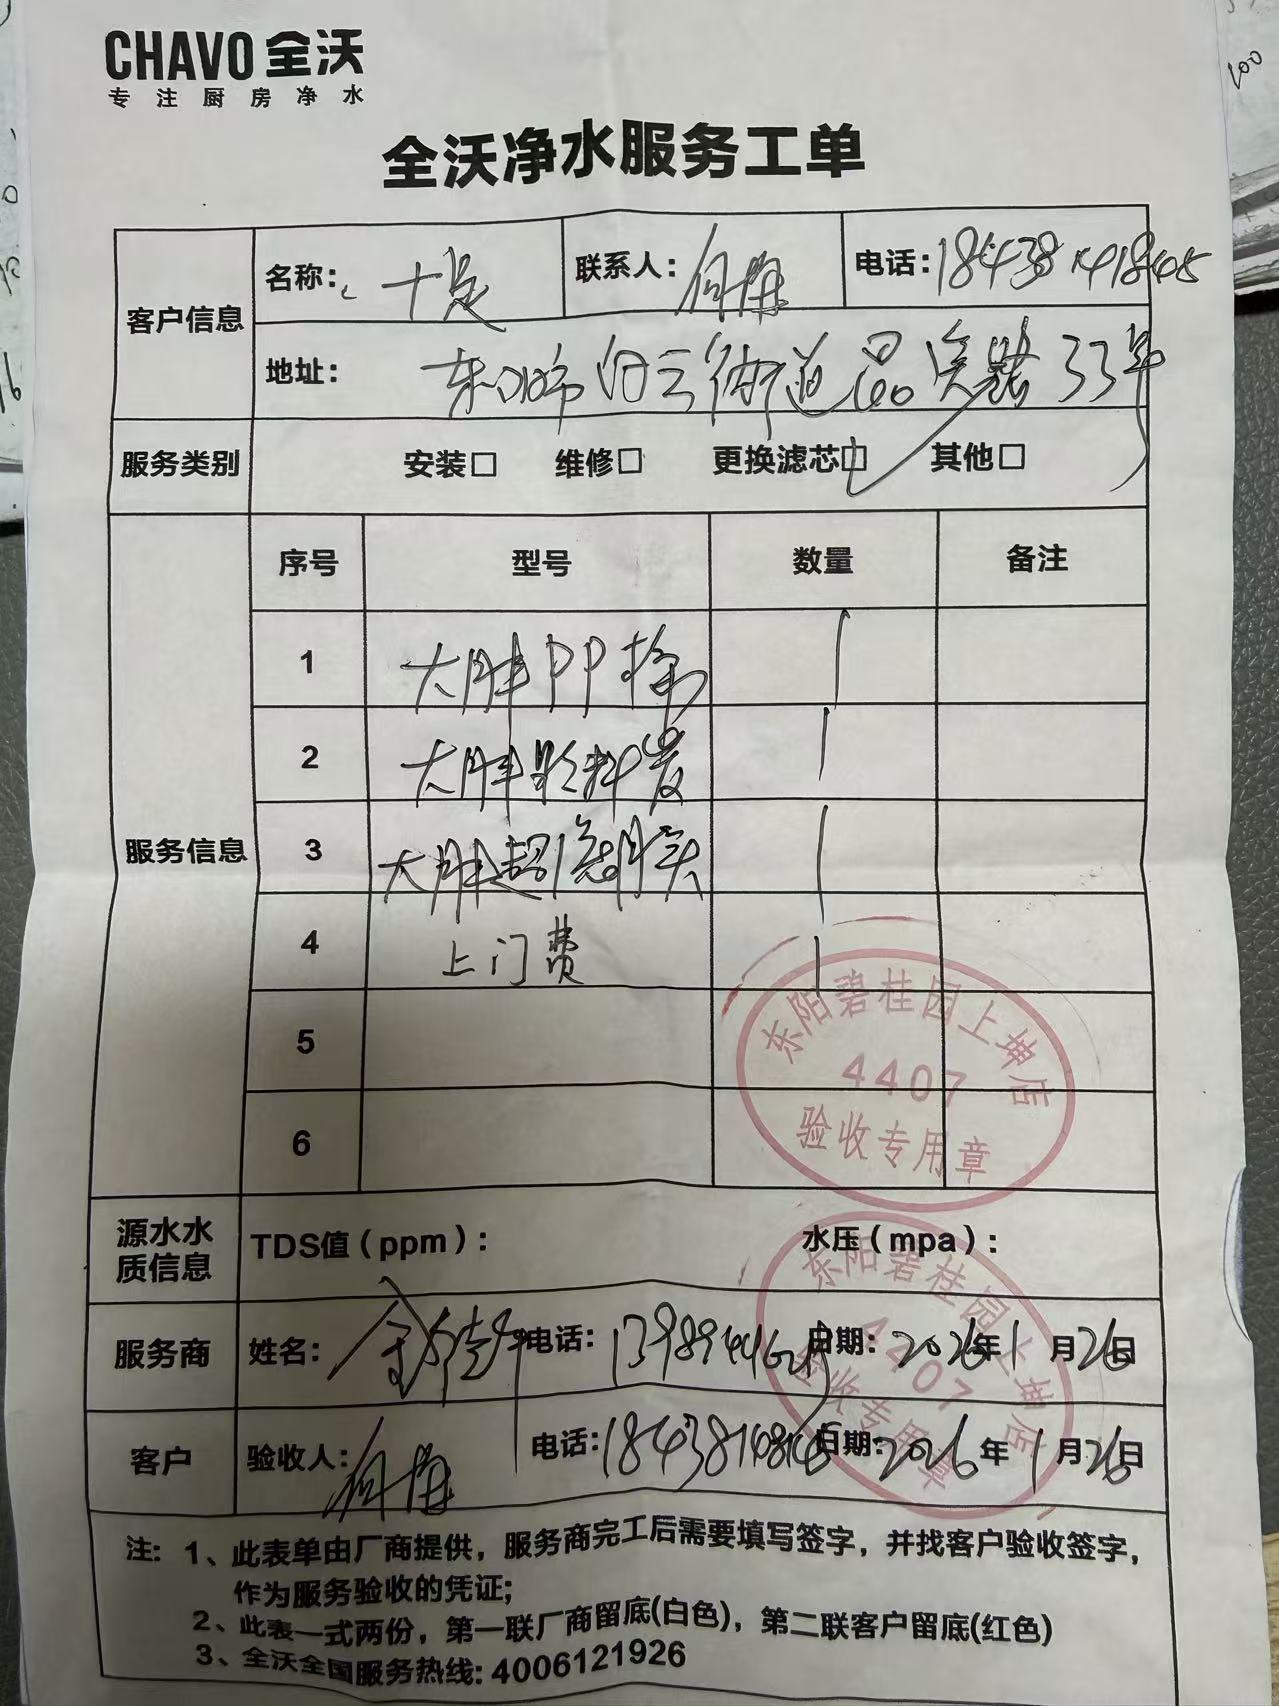 CHAVO 全沃
专注厨房净水
全沃净水服务工单
客户信息
名称: 十足
联系人:
电话:
地址: 东阳市白云街道 路33号
服务类别
安装□ 维修□ 更换滤芯□ 其他□
服务信息
序号 型号 数量 备注
1 大胖PP棉 1
2 大胖颗料炭 1
3 大胖超 1
4 上门费 1
5
6
东阳碧桂园上坤店
4407
验收专用章
源水水质信息
TDS值(ppm): 水压(mpa):
东阳碧桂园上坤店
4407
验收专用章
服务商 姓名: 电话: 日期: 2026年1月26日
客户 验收人: 电话: 日期: 2026年1月26日
注: 1、此表单由厂商提供，服务商完工后需要填写签字，并找客户验收签字，
作为服务验收的凭证;
2、此表一式两份，第一联厂商留底(白色)，第二联客户留底(红色)
3、全沃全国服务热线: 4006121926